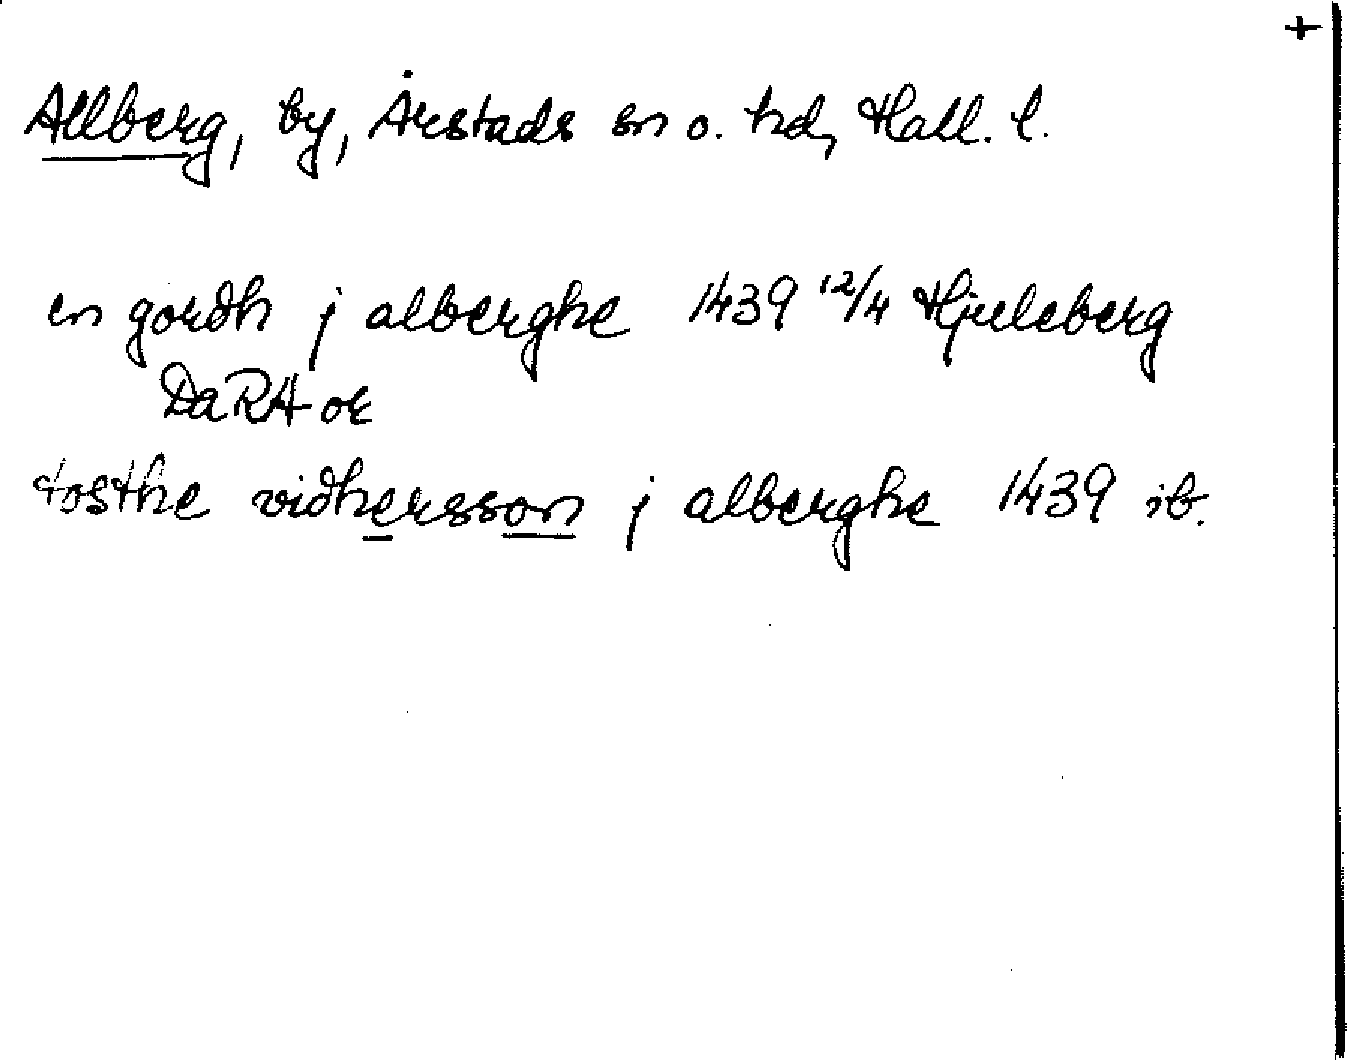 +
Allberg, by, Årstads sn o. hd, Hall. l.
en gordh j alberghe 1439 12/4 Hjuleberg
DaRA or
tosthe vidhersson j alberghe 1439 ib.